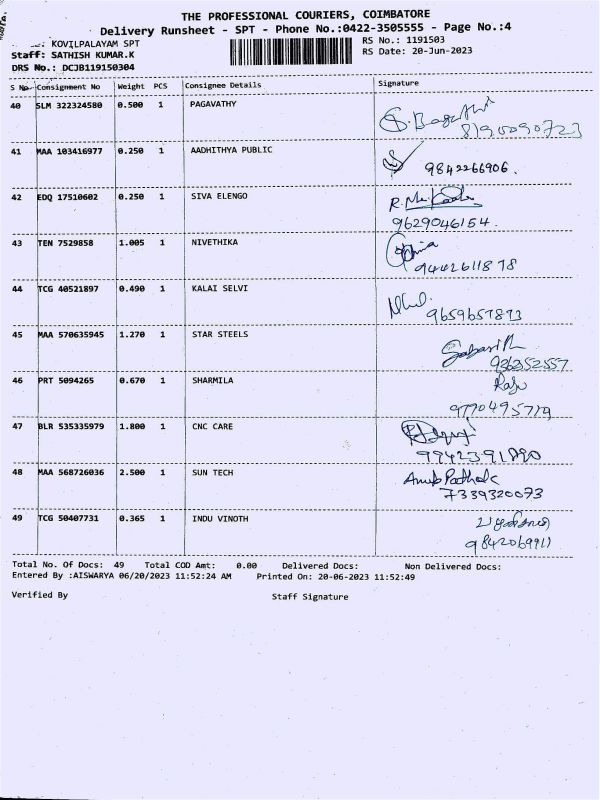 THE PROFESSIONAL COURIERS, COIMBATORE
Delivery Runsheet - SPT - Phone No.:0422-3505555 - Page No.:4
KOVILPALAYAM SPT
RS No.: 1191503
Staff: SATHISH KUMAR.K
RS Date: 20-Jun-2023
DRS No.: DCJB119150304
S No Consignment No Weight PCS Consignee Details Signature
40 SLM 322324580 0.500 1 PAGAVATHY
8190090723
41 MAA 103416977 0.250 1 AADHITHYA PUBLIC
9842266906.
42 EDQ 17510602 0.250 1 SIVA ELENGO
9629046154.
43 TEN 7529858 1.005 1 NIVETHIKA
9442611878
44 TCG 40521897 0.490 1 KALAI SELVI
9659657873
45 MAA 570635945 1.270 1 STAR STEELS
936352557
46 PRT 5094265 0.670 1 SHARMILA
Raju
9790495779
47 BLR 535335979 1.800 1 CNC CARE
48 MAA 568726036 2.500 1 SUN TECH
Anub Pathak
7339320073
49 TCG 50407731 0.365 1 INDU VINOTH
9842069911
Total No. Of Docs: 49 Total COD Amt: 0.00 Delivered Docs: Non Delivered Docs:
Entered By :AISWARYA 06/20/2023 11:52:24 AM Printed On: 20-06-2023 11:52:49
Verified By Staff Signature